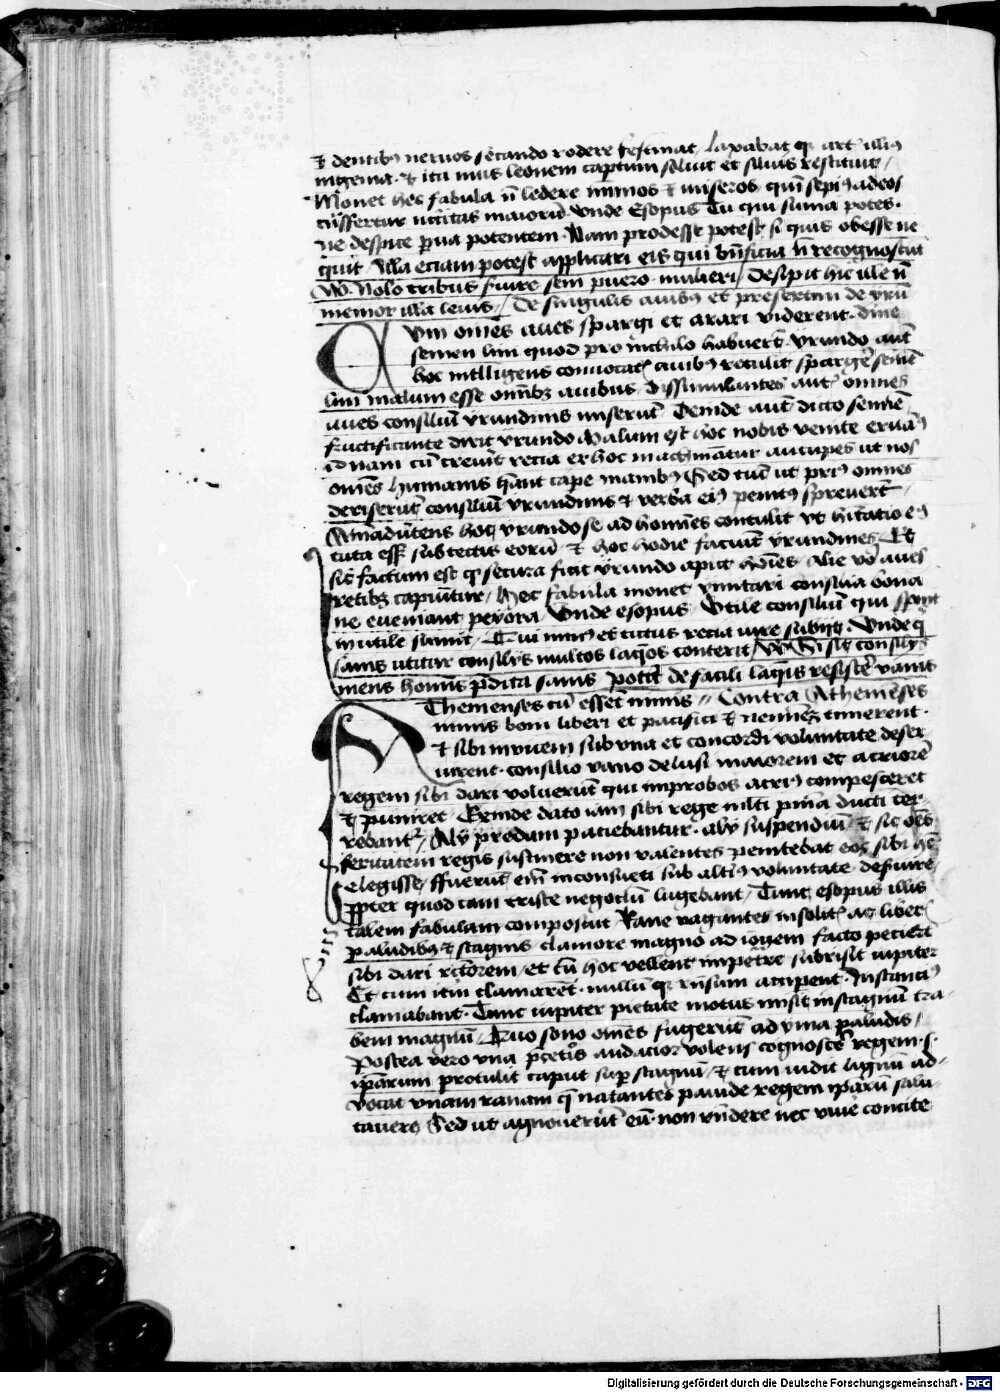 & dentibus nervos secando rodere festinat / laxabat q art illius
ingenia · & ita mus leonem captum solvit et silvis restituit /
Monet hec fabula n ledere minos & miseros · quin sepius ad eos
transfertur utilitas maiorum · unde Esopus Tu qui suma potes ·
ne despice parva potentem · Nam prodesse potest si quis obesse ne
quit / Illa eciam potest applicari eis qui bnficia n recognoscunt
Nolo tribus fuire sem puero · mulieri / desipit hic ille n
memor illa levis / De singulis avibus et presertim de yrun
Cum omes aves spargi et arari viderent · dine
semen lini quod pro nichilo habuert · yrundo aut
hoc intelligens convocatis avibus retulit spargere semen
lini malum esse omnibus avibus · dissimulantes aut omnes
aves consilium yrundinis riserunt Deinde aut dicto semine
fructificante dixit yrundo Malum est hoc nobis venite eruamus
id nam cum creverit recia ex hoc machinatur aucupes ut nos
omes humanis queant cape manibus Sed tunc ut prius omnes
deriserunt consilium yrundinis & verba eius penitus spreverunt
Animadvertens hoc yrundo se ad homines contulit ut hitatio eius
tuta esset sub tectis eorum · & hoc hodie faciunt yrundines · Et
sic factum est q secura fuit yrundo aput homines · Alie vero aves
retibus capiuntur / Hec fabula monet ymitari consilia bona
ne eveniant peyora / Unde esopus · Utile consilium qui spernit
inutile sumit / Qui nimis est tutus recia iure subit · Unde q
sanis utitur consilys multos laqos conterit / Si sis consilys
mens hominis predita sanis Poterit de facili laqis resistere vanis
Athenienses cum essent nimis / Contra Athenienses
nimis boni liberi et pacifici & neminem timerent ·
& sibi invicem sub una et concordi voluntate deser
virent · consilio vano delusi maiorem et acriorem
regem sibi dari voluerunt qui improbos acrius compesceret
& puniret Deinde dato iam sibi rege multi pma ducti ter
redantur / Aly predam patiebantur · aly suspendium & sic oes
feritatem regis sustinere non valentes penitebat eos sibi hc
elegisse / ffuerunt em inconsueti sub altius voluntate deservire
ppter quod tam triste negotium lugebant / Tunc esopus illis
talem fabulam composuit Rane vagantes insolite ac libere
paludibus & stagnis clamore magno ad iovem facto petierunt
sibi dari rectorem / et cum hoc vellent impetre subrisit iupiter
Et cum iterum clamarent · nullum q rnsum accipent · Instancius
clamabant · Tunc iupiter pietate motus misit in stagnum tra
bem magnum / Quo sono omes fugerunt ad yma paludis /
Postea vero una pceteris audacior volens cognoscere regem · s ·
iparum protulit caput super stagnum / & tum vidit lignum ad
vocat unam ranam q natantes palude regem iparum salu
tavere Sed ut agnoverunt eum · non videre nec vive concite
Digitalisierung gefördert durch die Deutsche Forschungsgemeinschaft - DFG